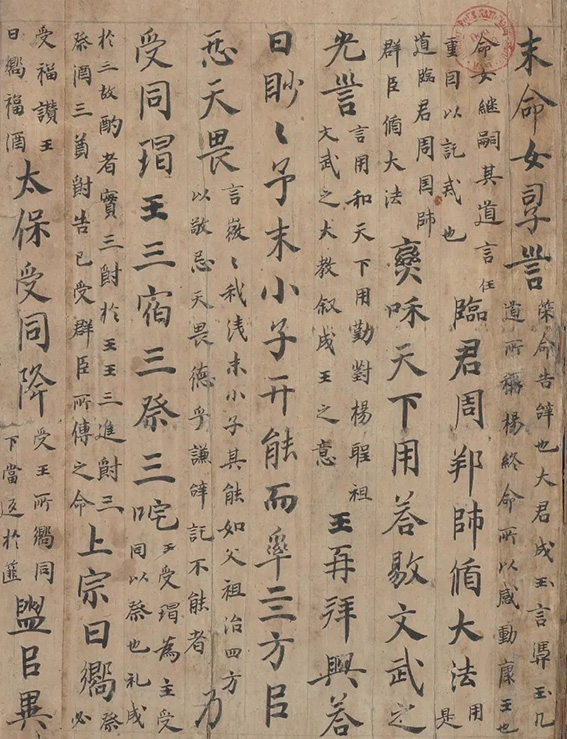 末命女孠訓策命告辝也大君成王言馮玉几道所稱楊終命所以感動康王也
命女継嗣其道言任重因以託戒也臨君周邦帥循大法用是
道臨君周国帥群臣循大法爕咊天下用荅敭文武之
光訓言用和天下用勤對楊聖祖文武之大教叙成王之意王再拜興荅
曰眇〻予末小子丌能而率亖方㠯
忌天畏言微〻我浅末小子其能如父祖治四方以敬忌天畏德乎謙辝託不能者乃
受同瑁王三宿三祭三咤王受瑁為主受同以祭也礼成
於三故酌者實三爵於王王三進爵三祭酒三奠爵告已受群臣所傳之命上宗曰嚮祭必
受福讃王曰嚮福酒太保受同降受王所嚮同下當返於篚盥㠯異